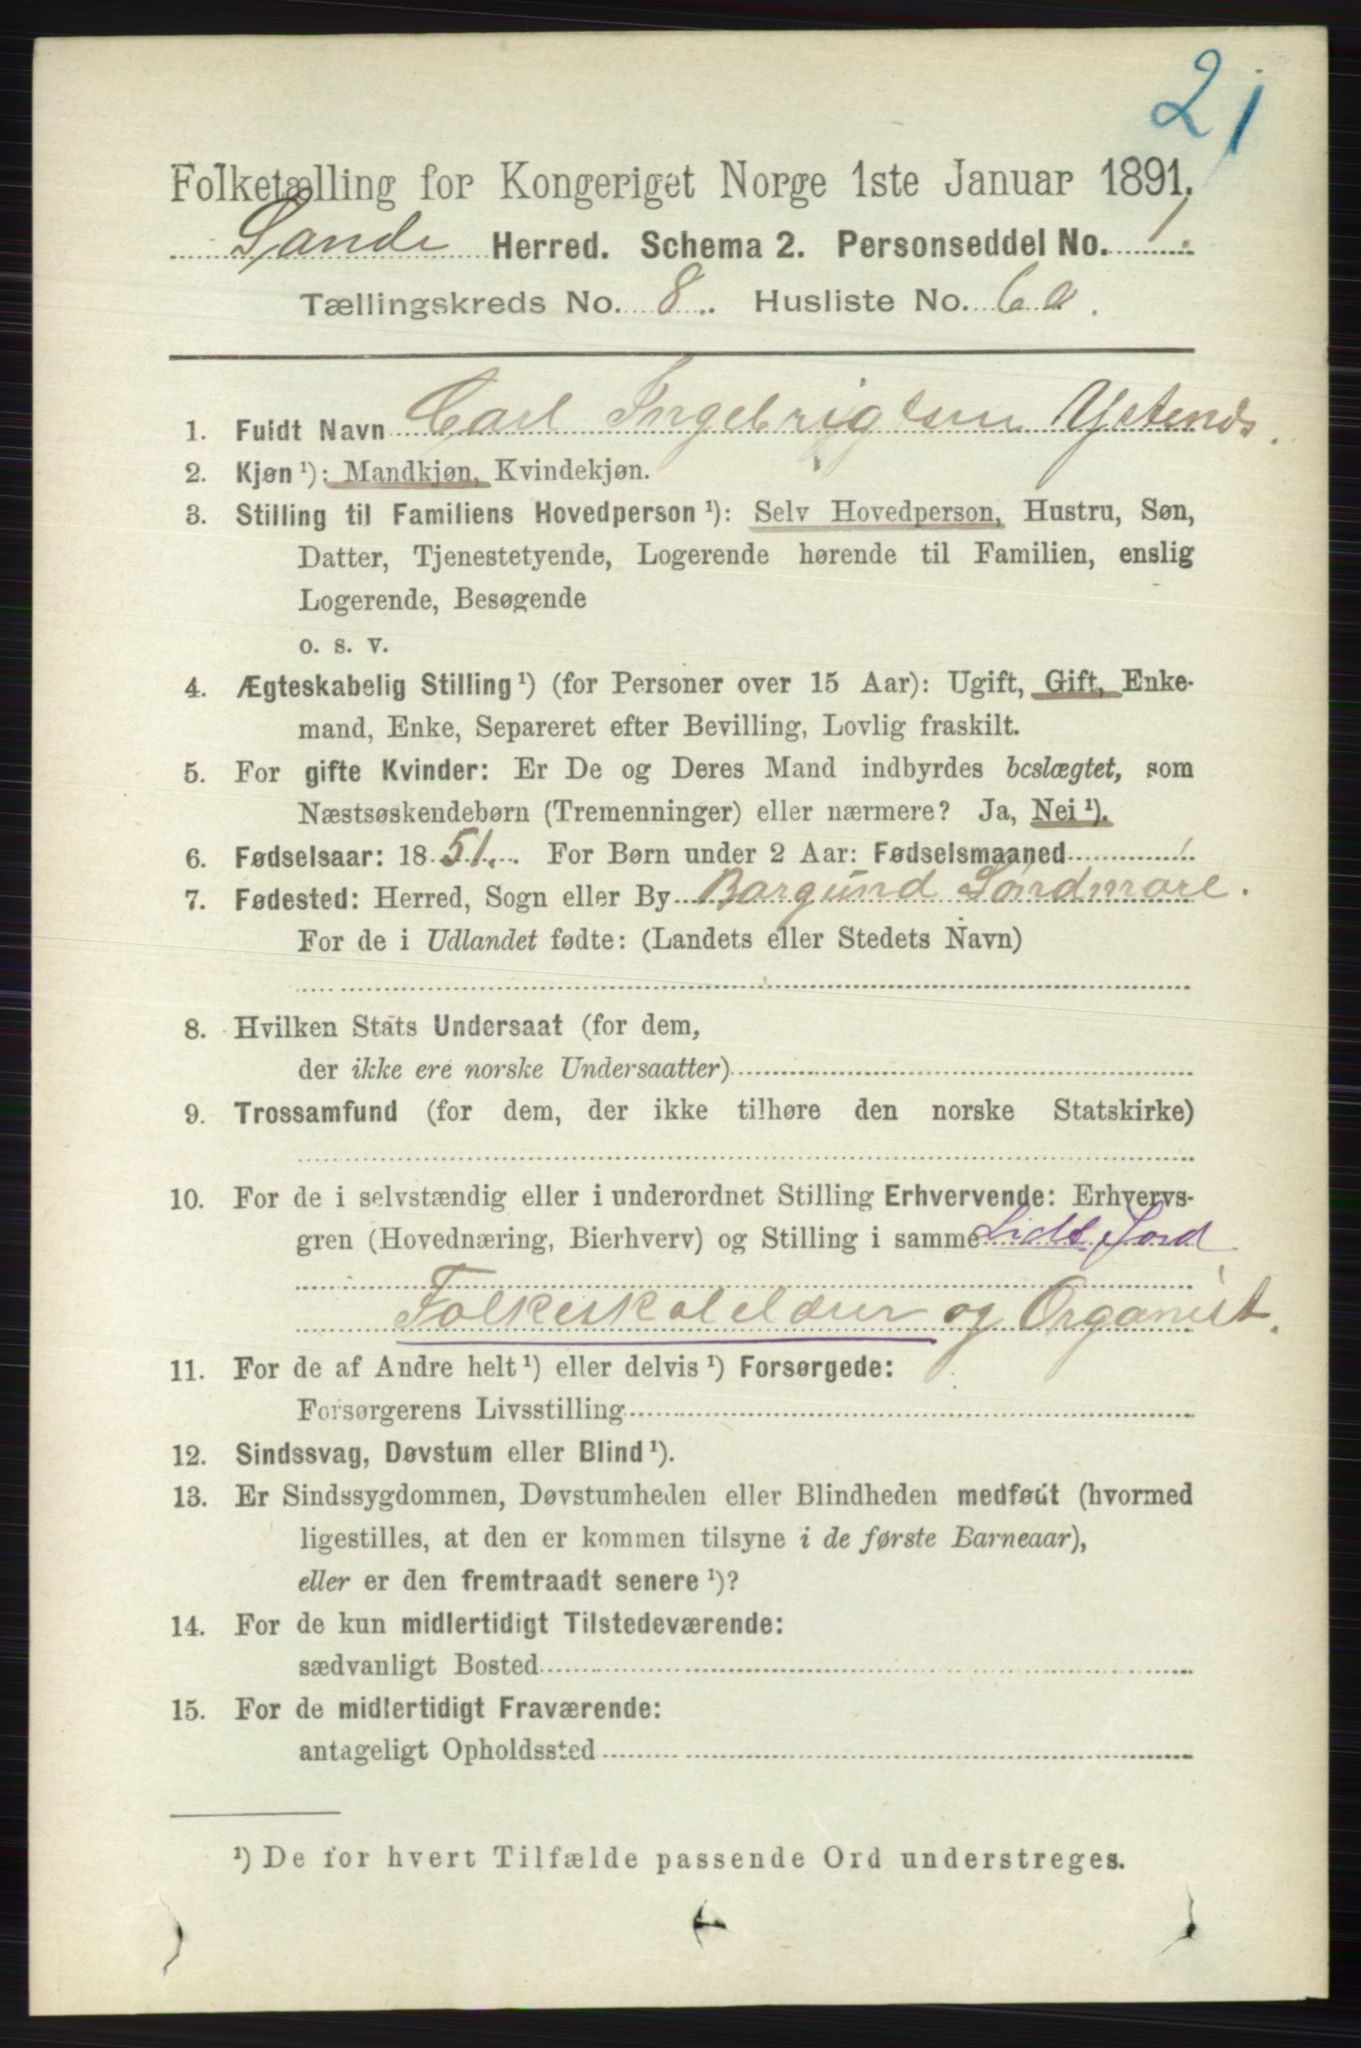 21
Folketælling for Kongeriget Norge 1ste Januar 1891.
Sande Herred. Schema 2. Personseddel No. 1.
Tællingskreds No. 8. Husliste No. 6a.
1. Fuldt Navn Carl Ingebrigtsen
2. Kjøn ¹): Mandkjøn, Kvindekjøn.
3. Stilling til Familiens Hovedperson ¹): Selv Hovedperson, Hustru, Søn,
Datter, Tjenestetyende, Logerende hørende til Familien, enslig
Logerende, Besøgende
o. s. v.
4. Ægteskabelig Stilling ¹) (for Personer over 15 Aar): Ugift, Gift, Enke-
mand, Enke, Separeret efter Bevilling, Lovlig fraskilt.
5. For gifte Kvinder: Er De og Deres Mand indbyrdes beslægtet, som
Næstsøskendebørn (Tremenninger) eller nærmere? Ja, Nei ¹).
6. Fødselsaar: 1851. For Børn under 2 Aar: Fødselsmaaned
7. Fødested: Herred, Sogn eller By Borgund Söndmøre.
For de i Udlandet fødte: (Landets eller Stedets Navn)
8. Hvilken Stats Undersaat (for dem,
der ikke ere norske Undersaatter)
9. Trossamfund (for dem, der ikke tilhøre den norske Statskirke)
10. For de i selvstændig eller i underordnet Stilling Erhvervende: Erhvervs-
gren (Hovednæring, Bierhverv) og Stilling i samme Lidt Jord
Folkeskolelærer og Organist.
11. For de af Andre helt ¹) eller delvis ¹) Forsørgede:
Forsørgerens Livsstilling
12. Sindssvag, Døvstum eller Blind ¹).
13. Er Sindssygdommen, Døvstumheden eller Blindheden medfødt (hvormed
ligestilles, at den er kommen tilsyne i de første Barneaar),
eller er den fremtraadt senere ¹)?
14. For de kun midlertidigt Tilstedeværende:
sædvanligt Bosted
15. For de midlertidigt Fraværende:
antageligt Opholdssted
¹) De for hvert Tilfælde passende Ord understreges.